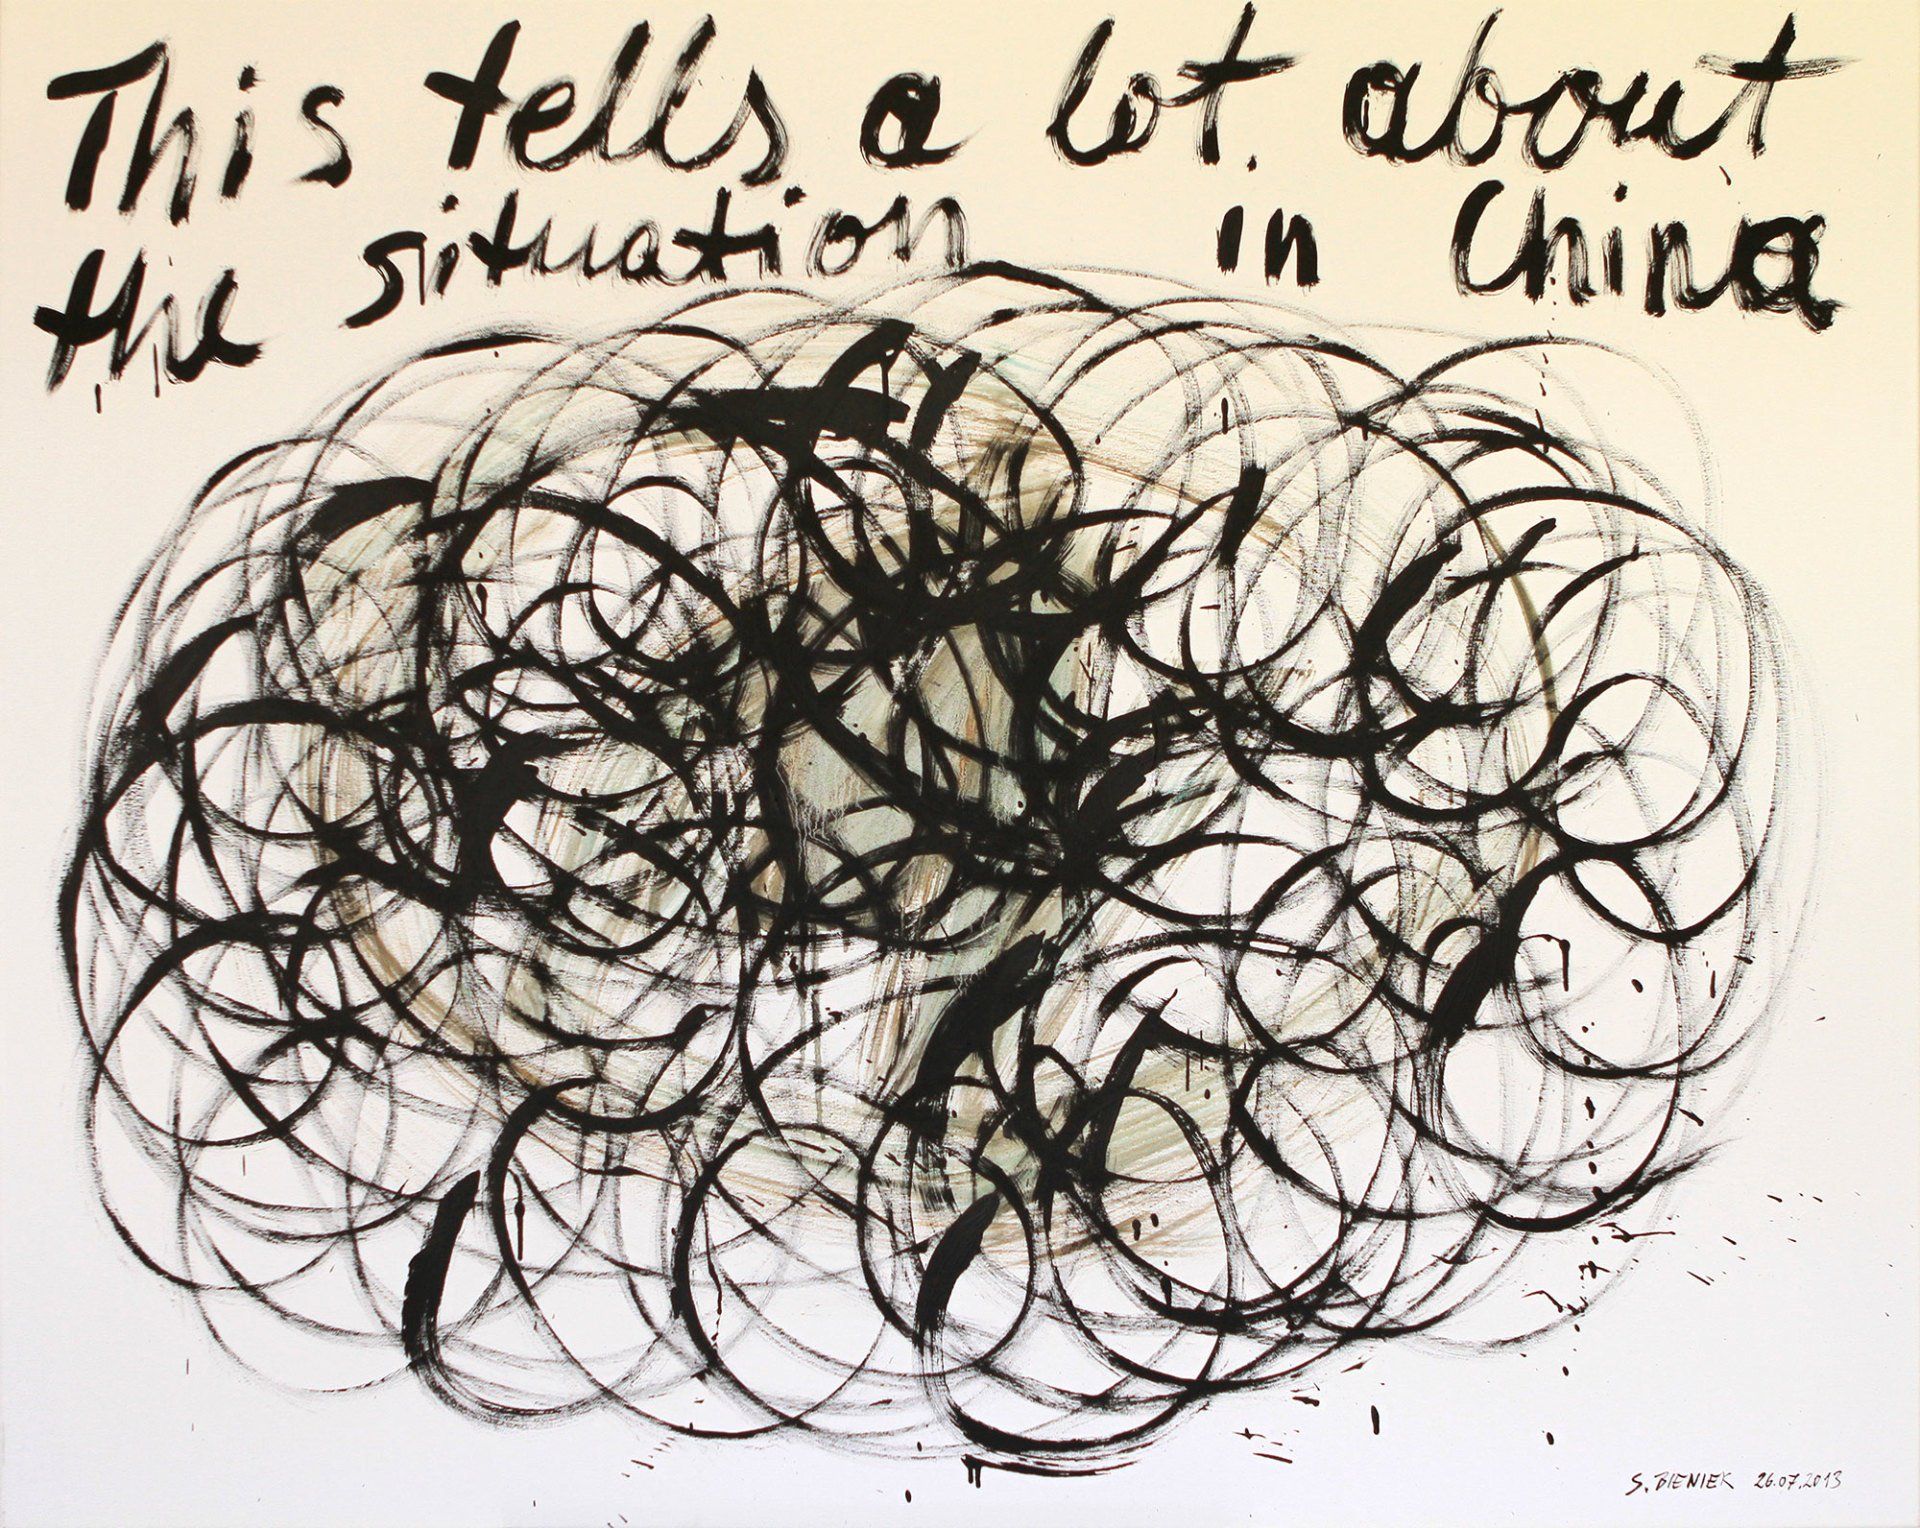 This tells a lot about
the situation in China
S. BIENIEK 26.07.2013